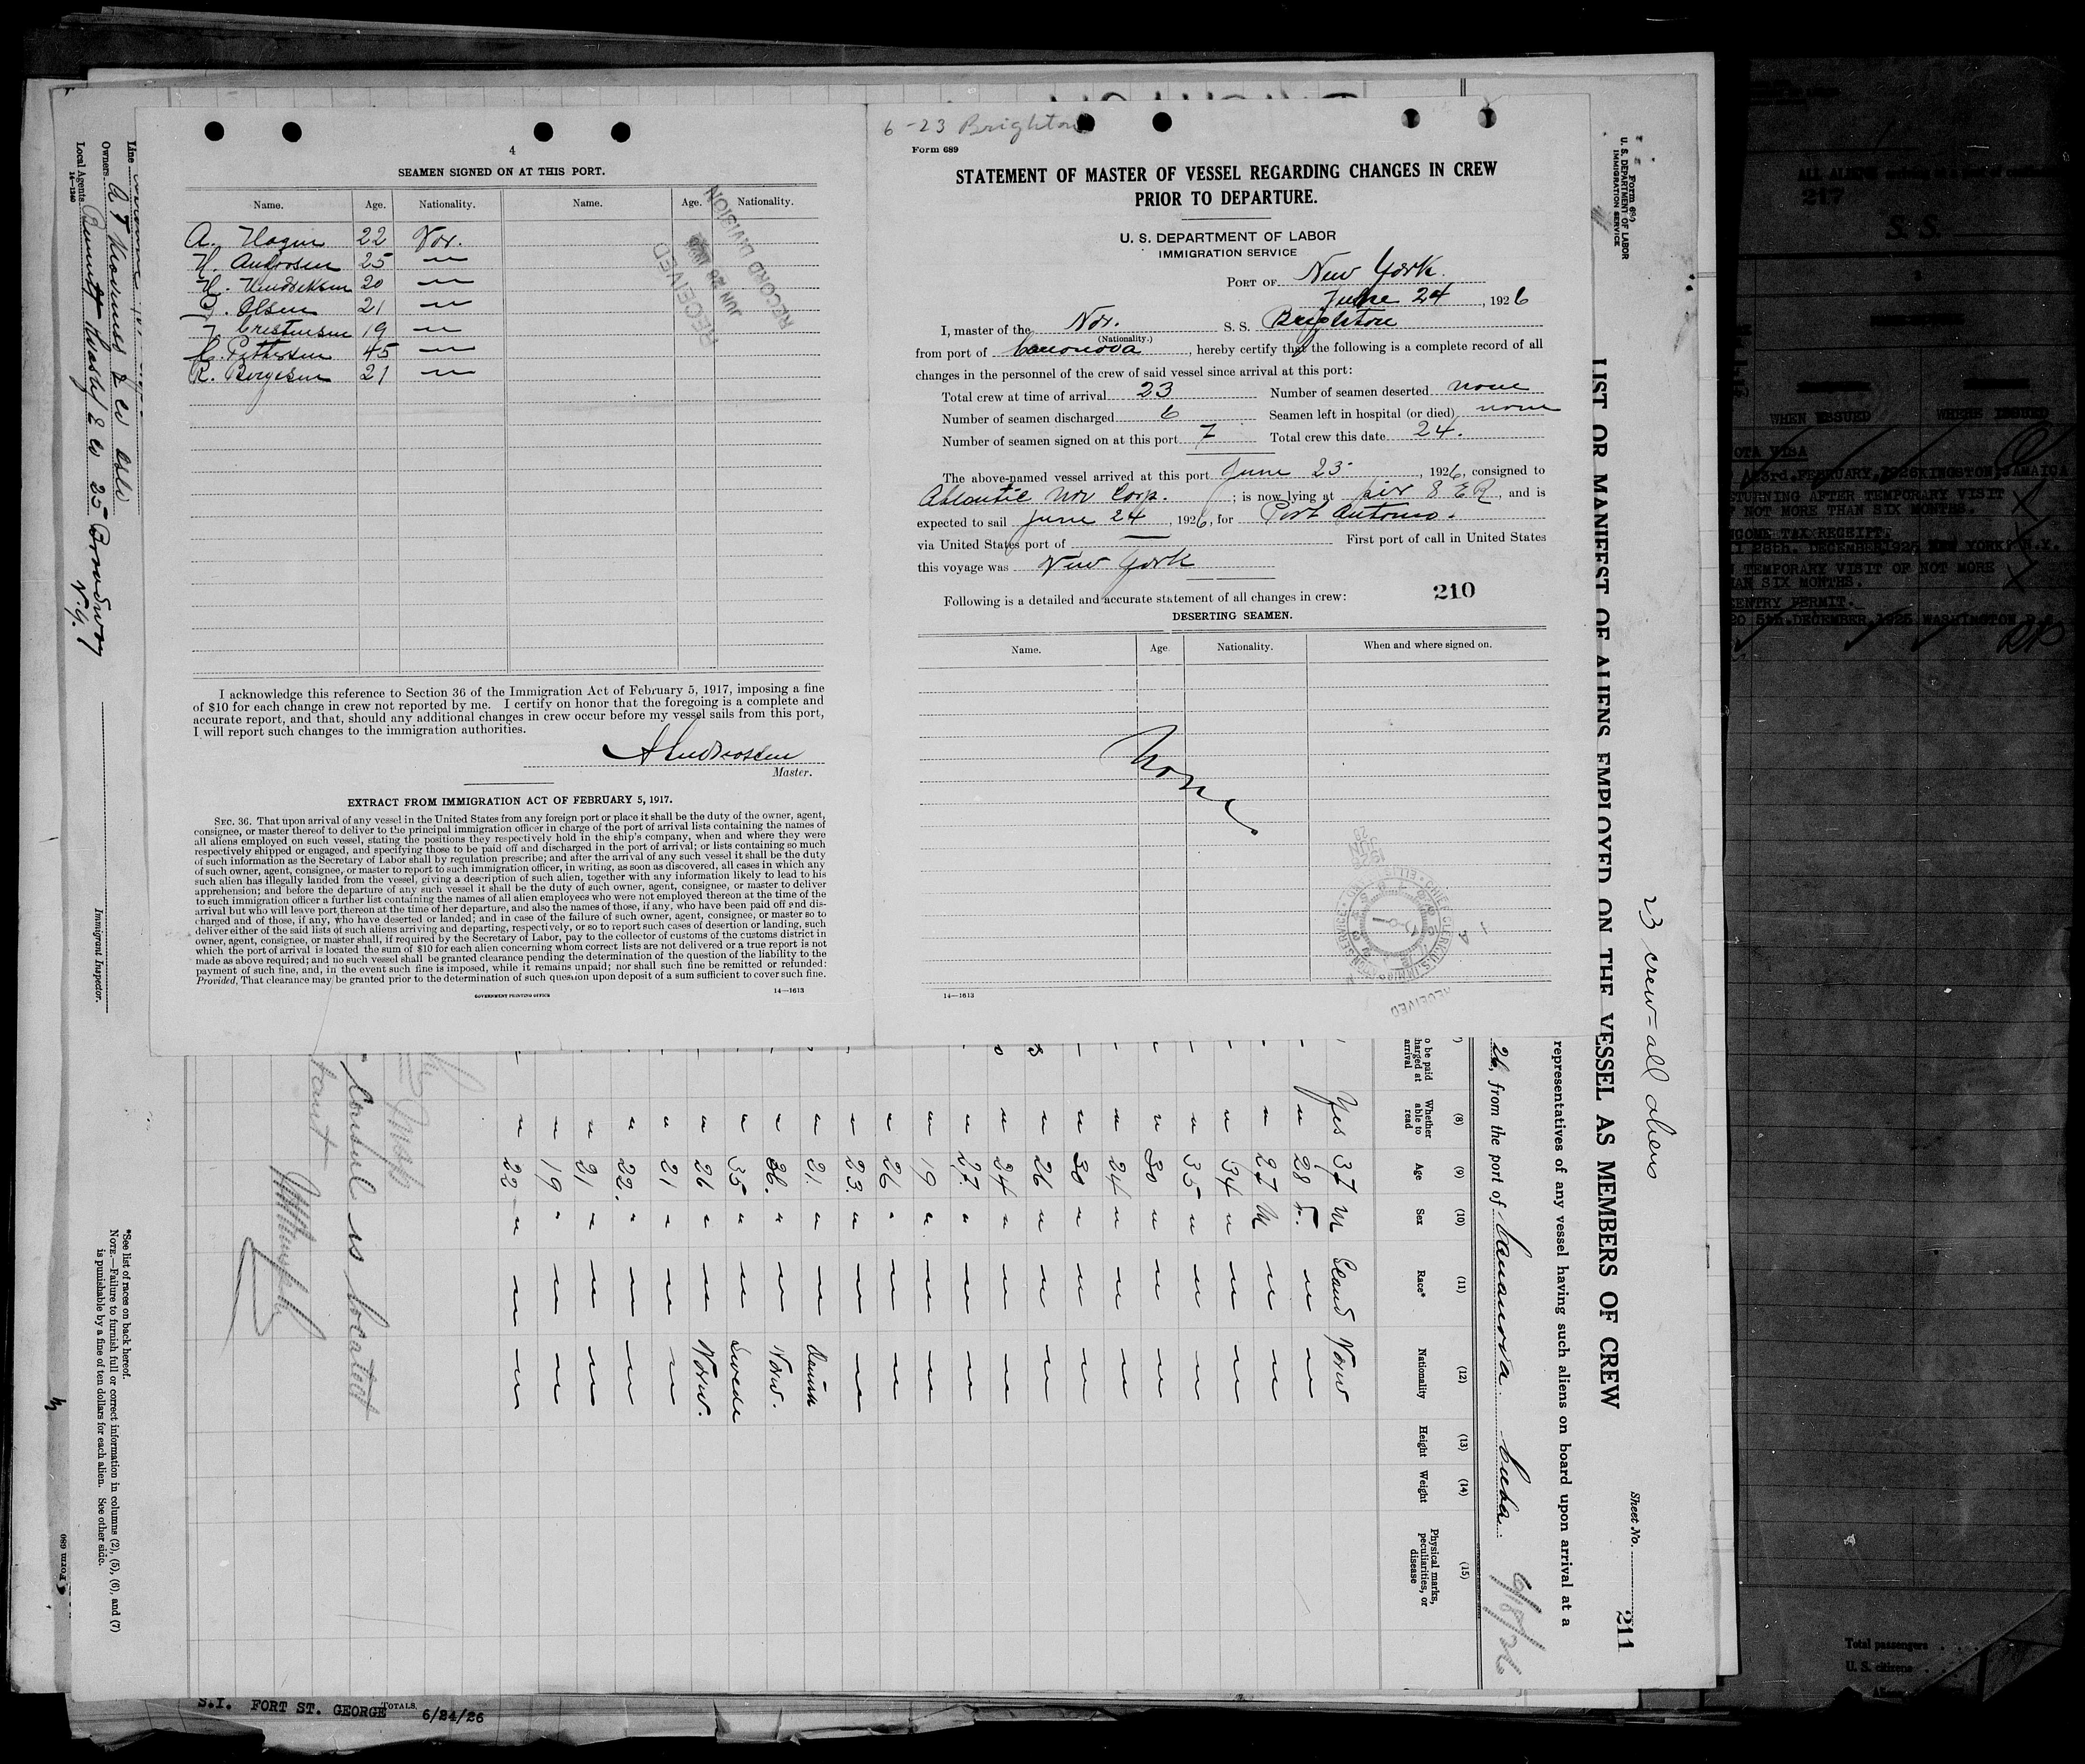 4
SEAMEN SIGNED ON AT THIS PORT.
Name. Age. Nationality. Name. Age. Nationality.
A. Hagen 22 Nor.
H. Androsen 25 —
H. Hendriksen 20 —
Olsen 21 —
Cristensen 19 —
C. Pettersen 45 —
R. Borgesen 21 —
RECEIVED
JUN 28
RECORD DIVISION
I acknowledge this reference to Section 36 of the Immigration Act of February 5, 1917, imposing a fine
of $10 for each change in crew not reported by me. I certify on honor that the foregoing is a complete and
accurate report, and that, should any additional changes in crew occur before my vessel sails from this port,
I will report such changes to the immigration authorities.
Master.
EXTRACT FROM IMMIGRATION ACT OF FEBRUARY 5, 1917.
SEC. 36. That upon arrival of any vessel in the United States from any foreign port or place it shall be the duty of the owner, agent,
consignee, or master thereof to deliver to the principal immigration officer in charge of the port of arrival lists containing the names of
all aliens employed on such vessel, stating the positions they respectively hold in the ship's company, when and where they were
respectively shipped or engaged, and specifying those to be paid off and discharged in the port of arrival; or lists containing so much
of such information as the Secretary of Labor shall by regulation prescribe; and after the arrival of any such vessel it shall be the duty
of such owner, agent, consignee, or master to report to such immigration officer, in writing, as soon as discovered, all cases in which any
such alien has illegally landed from the vessel, giving a description of such alien, together with any information likely to lead to his
apprehension; and before the departure of any such vessel it shall be the duty of such owner, agent, consignee, or master to deliver
to such immigration officer a further list containing the names of all alien employees who were not employed thereon at the time of the
arrival but who will leave port thereon at the time of her departure, and also the names of those, if any, who have been paid off and dis-
charged and of those, if any, who have deserted or landed; and in case of the failure of such owner, agent, consignee, or master so to
deliver either of the said lists of such aliens arriving and departing, respectively, or so to report such cases of desertion or landing, such
owner, agent, consignee, or master shall, if required by the Secretary of Labor, pay to the collector of customs of the customs district in
which the port of arrival is located the sum of $10 for each alien concerning whom correct lists are not delivered or a true report is not
made as above required; and no such vessel shall be granted clearance pending the determination of the question of the liability to the
payment of such fine, and, in the event such fine is imposed, while it remains unpaid; nor shall such fine be remitted or refunded:
Provided, That clearance may be granted prior to the determination of such question upon deposit of a sum sufficient to cover such fine.
GOVERNMENT PRINTING OFFICE
14—1613
6-23 Brighton
Form 689
STATEMENT OF MASTER OF VESSEL REGARDING CHANGES IN CREW
PRIOR TO DEPARTURE.
U. S. DEPARTMENT OF LABOR
IMMIGRATION SERVICE
PORT OF New York.
June 24, 1926
I, master of the Nor. S. S. Brighton
(Nationality.)
from port of , hereby certify that the following is a complete record of all
changes in the personnel of the crew of said vessel since arrival at this port:
Total crew at time of arrival 23 Number of seamen deserted none
Number of seamen discharged 6 Seamen left in hospital (or died) none
Number of seamen signed on at this port 7 Total crew this date 24.
The above-named vessel arrived at this port June 23, 1926, consigned to
Atlantic Nav Corp. ; is now lying at pier 8 E R, and is
expected to sail June 24, 1926, for Port Antonio.
via United States port of — First port of call in United States
this voyage was New York
Following is a detailed and accurate statement of all changes in crew: 210
DESERTING SEAMEN.
Name. Age. Nationality. When and where signed on.
None
14—1613
RECEIVED
Line
Owners
Local Agents 25 Broadway
N.Y.
14—1240
Immigrant Inspector.
*See list of races on back hereof.
NOTE.—Failure to furnish full or correct information in columns (2), (5), (6), and (7)
is punishable by a fine of ten dollars for each alien. See other side.
Form 689
U. S. DEPARTMENT OF LABOR
IMMIGRATION SERVICE
23 crew—all aliens
Sheet No.
211
LIST OR MANIFEST OF ALIENS EMPLOYED ON THE VESSEL AS MEMBERS OF CREW
representatives of any vessel having such aliens on board upon arrival at a
26, from the port of Cuba
6/8/26
(8) (9) (10) (11) (12) (13) (14) (15)
Whether able to read Age Sex Race* Nationality Height Weight Physical marks, peculiarities, or disease
Yes 37 M Scand Norw
" 28 F. " "
" 27 M " "
" 34 " " "
" 35 " " "
" 30 " " "
" 24 " " "
" 30 " " "
" 26 " " "
" 24 " " "
" 27. " " "
" 19 " " "
" 26 " " "
" 23. " " "
" 21. " " Danish
" 36. " " Norw.
" 35 " " Swede
" 26 " " Norw.
" 21 " " "
" 22. " " "
" 21 " " "
" 19 " " "
" 22 " " "
Consul is located
S.I. FORT ST. GEORGE TOTALS. 6/24/26
ALL ALIENS
217
S. S.
WHEN ISSUED WHERE ISSUED
3rd.FEBRUARY,1926 KINGSTON,JAMAICA
RETURNING AFTER TEMPORARY VISIT
NOT MORE THAN SIX MONTHS.
INCOME TAX RECEIPT.
28th. DECEMBER 1925 NEW YORK, N.Y.
TEMPORARY VISIT OF NOT MORE
THAN SIX MONTHS.
5th.DECEMBER,1925.WASHINGTON
Total passengers
U. S. citizens